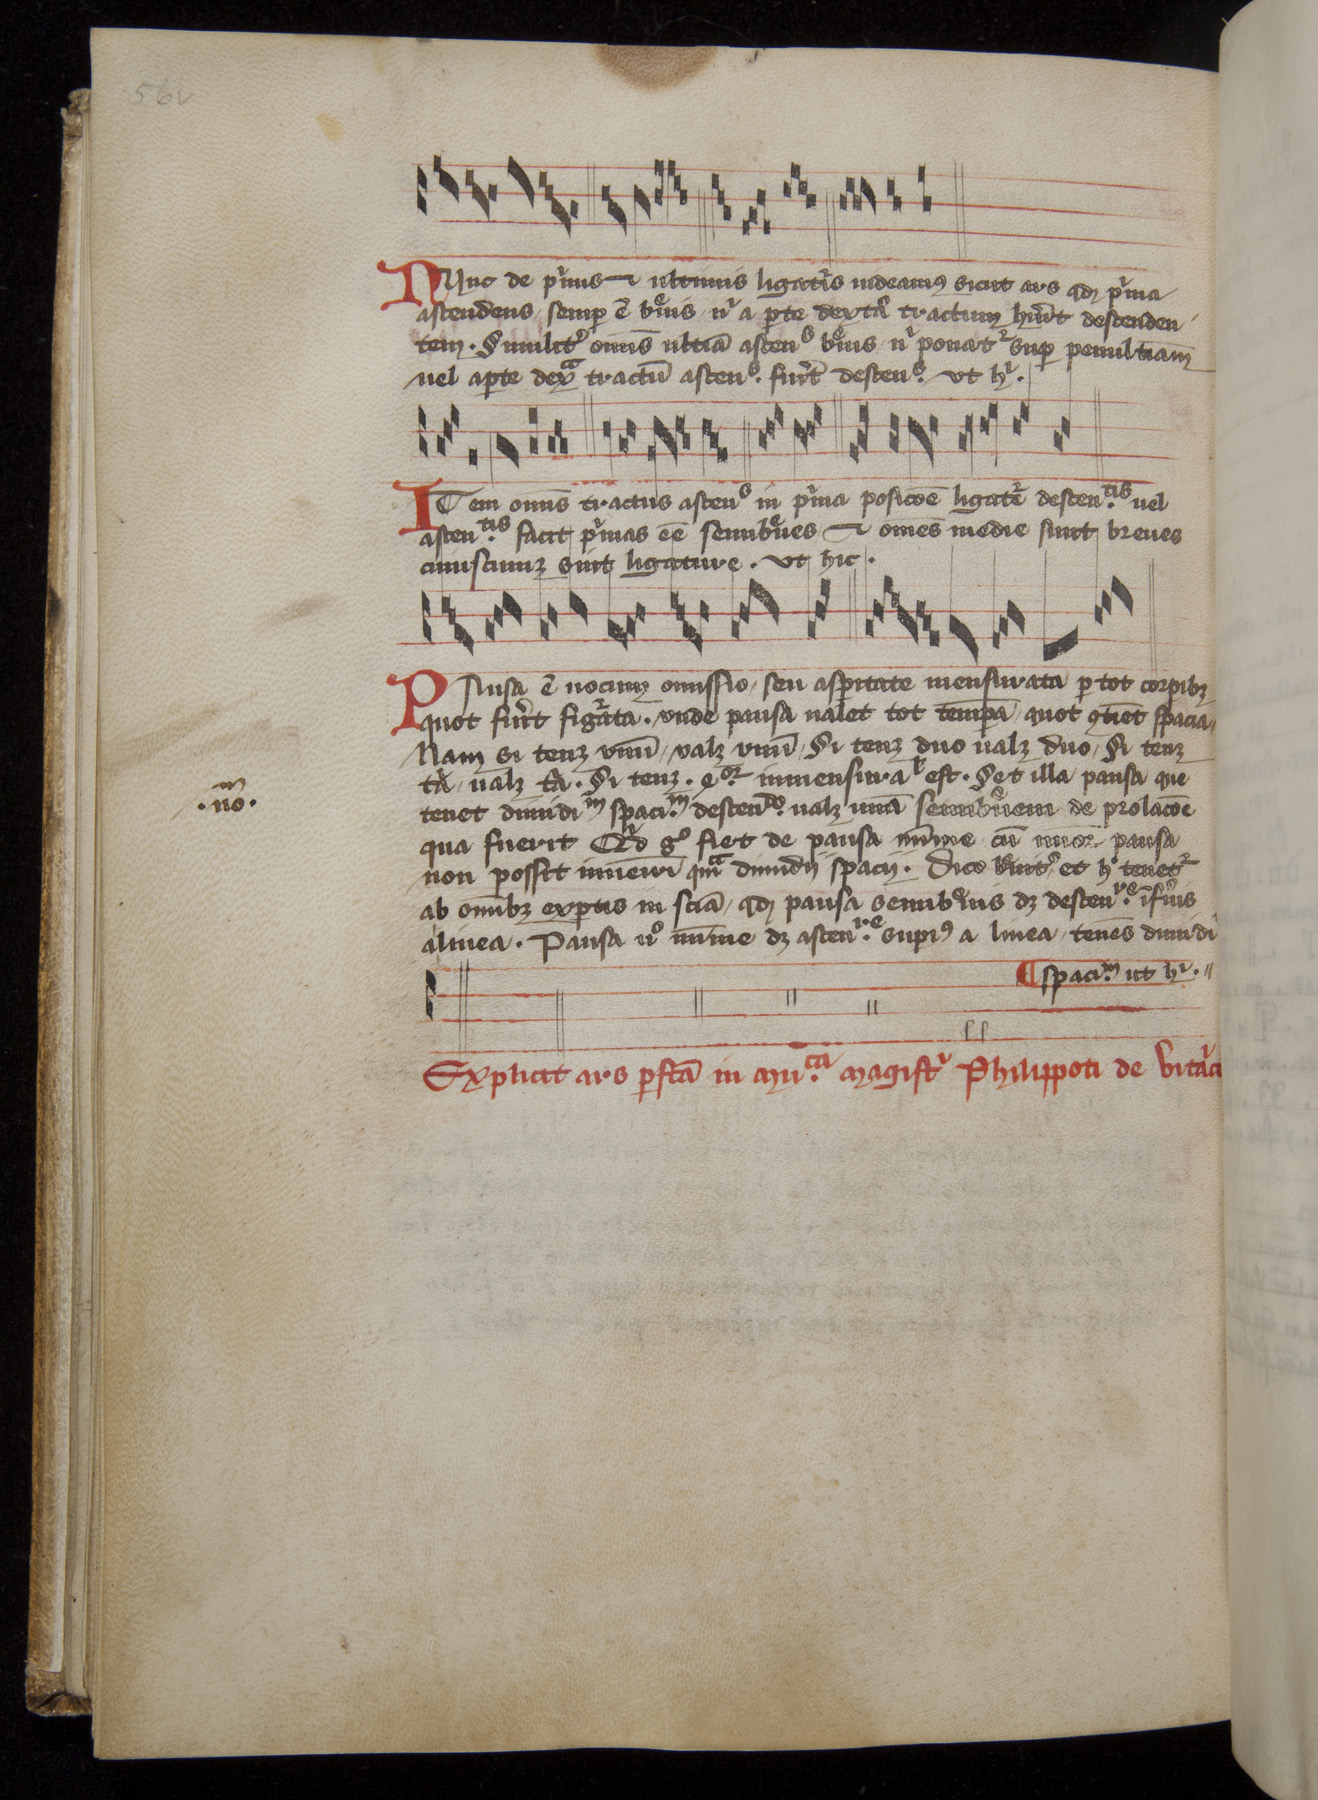 56v
Nunc de p'mis ⁊ ultimis ligat'is uideamꝰ sicut ars qđ p'ma
ascendens semper ē b'uis n' a p̱te dext'a tractum hūit descenden
tem. Similit' omīs ultīa ascenˢ b'uis n' ponat' sup penultimā
uel a p̱te dexᵃ tractū ascenˢ. fūit descenˢ. vt hⁱ.
ITem omīs tractus ascenˢ in p'ma posicōe ligat'e descen.ᵗⁱˢ uel
ascen.ᵗⁱˢ facit p'mas eē semib'ues ⁊ omēs medie sunt breues
cuiuscumqꝫ sint ligature. vt hic.
Pausa ē uocum omissio, seu asp̱itate mensurata p̱ tot corpibꝫ
quot fūit figᵃta. vnde pausa ualet tot temp̱a, quot ꝯtinēt spacia,
Nam si tenꝫ vnū, valꝫ vnū, Si tenꝫ duo ualꝫ duo, Si tenꝫ
tᵃ, ualꝫ tᵃ. Si tenꝫ. qᵒʳ. inmensuraˡ est. Set illa pausa que
.nō.ᵐ
tenet dimidiᵐ spaci.ᵐ descen.ᵈᵒ ualꝫ unā semib'uem de prolacōe
qua fuerit Qᵈ gᵒ fiet de pausa mīme cū minor pausa
non possit inueniri qᵃm dimidij spacij. Dico breuit' et hᵒ tenet'
ab omībꝫ exp̱tis in sciā, qđ pausa semib'uis dꝫ descen.ʳᵉ īfⁱus
a linea. Pausa uᵒ mīme dꝫ ascen.ʳᵉ supiꝰ a linea, tenēs dimidi
¶ spaci.ᵐ ut hⁱ.
Explicit ars p̱fcā in mu.ᶜᵃ magistⁱ Philippoti de Vitⁱaci